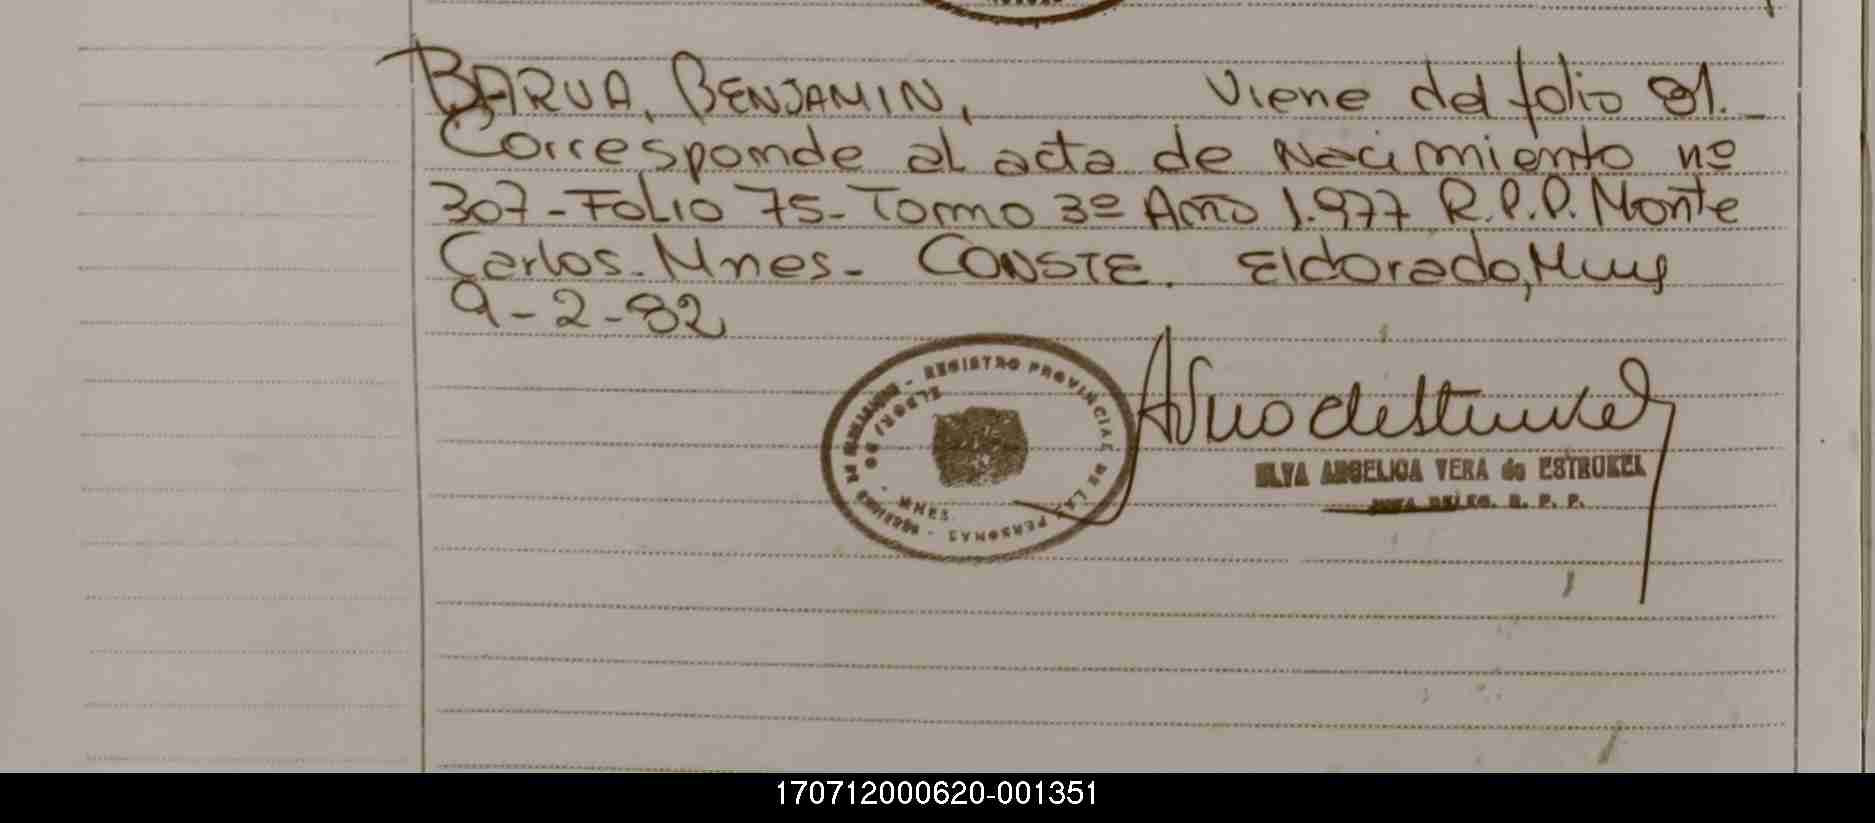 BARUA, BENJAMIN, Viene del folio 81.
Corresponde al acta de Nacimiento nº
307-FOLIO 75- Tomo 3º Año 1.977 R.P.P. Monte
Carlos. Mnes- CONSTE. Eldorado, Mnes
9-2-82
REGISTRO PROVINCIAL DE LAS PERSONAS
ELDORADO - MNES.
ELVA ANGELICA VERA de ESTRUKEL
DELEG. R. P. P.
170712000620-001351